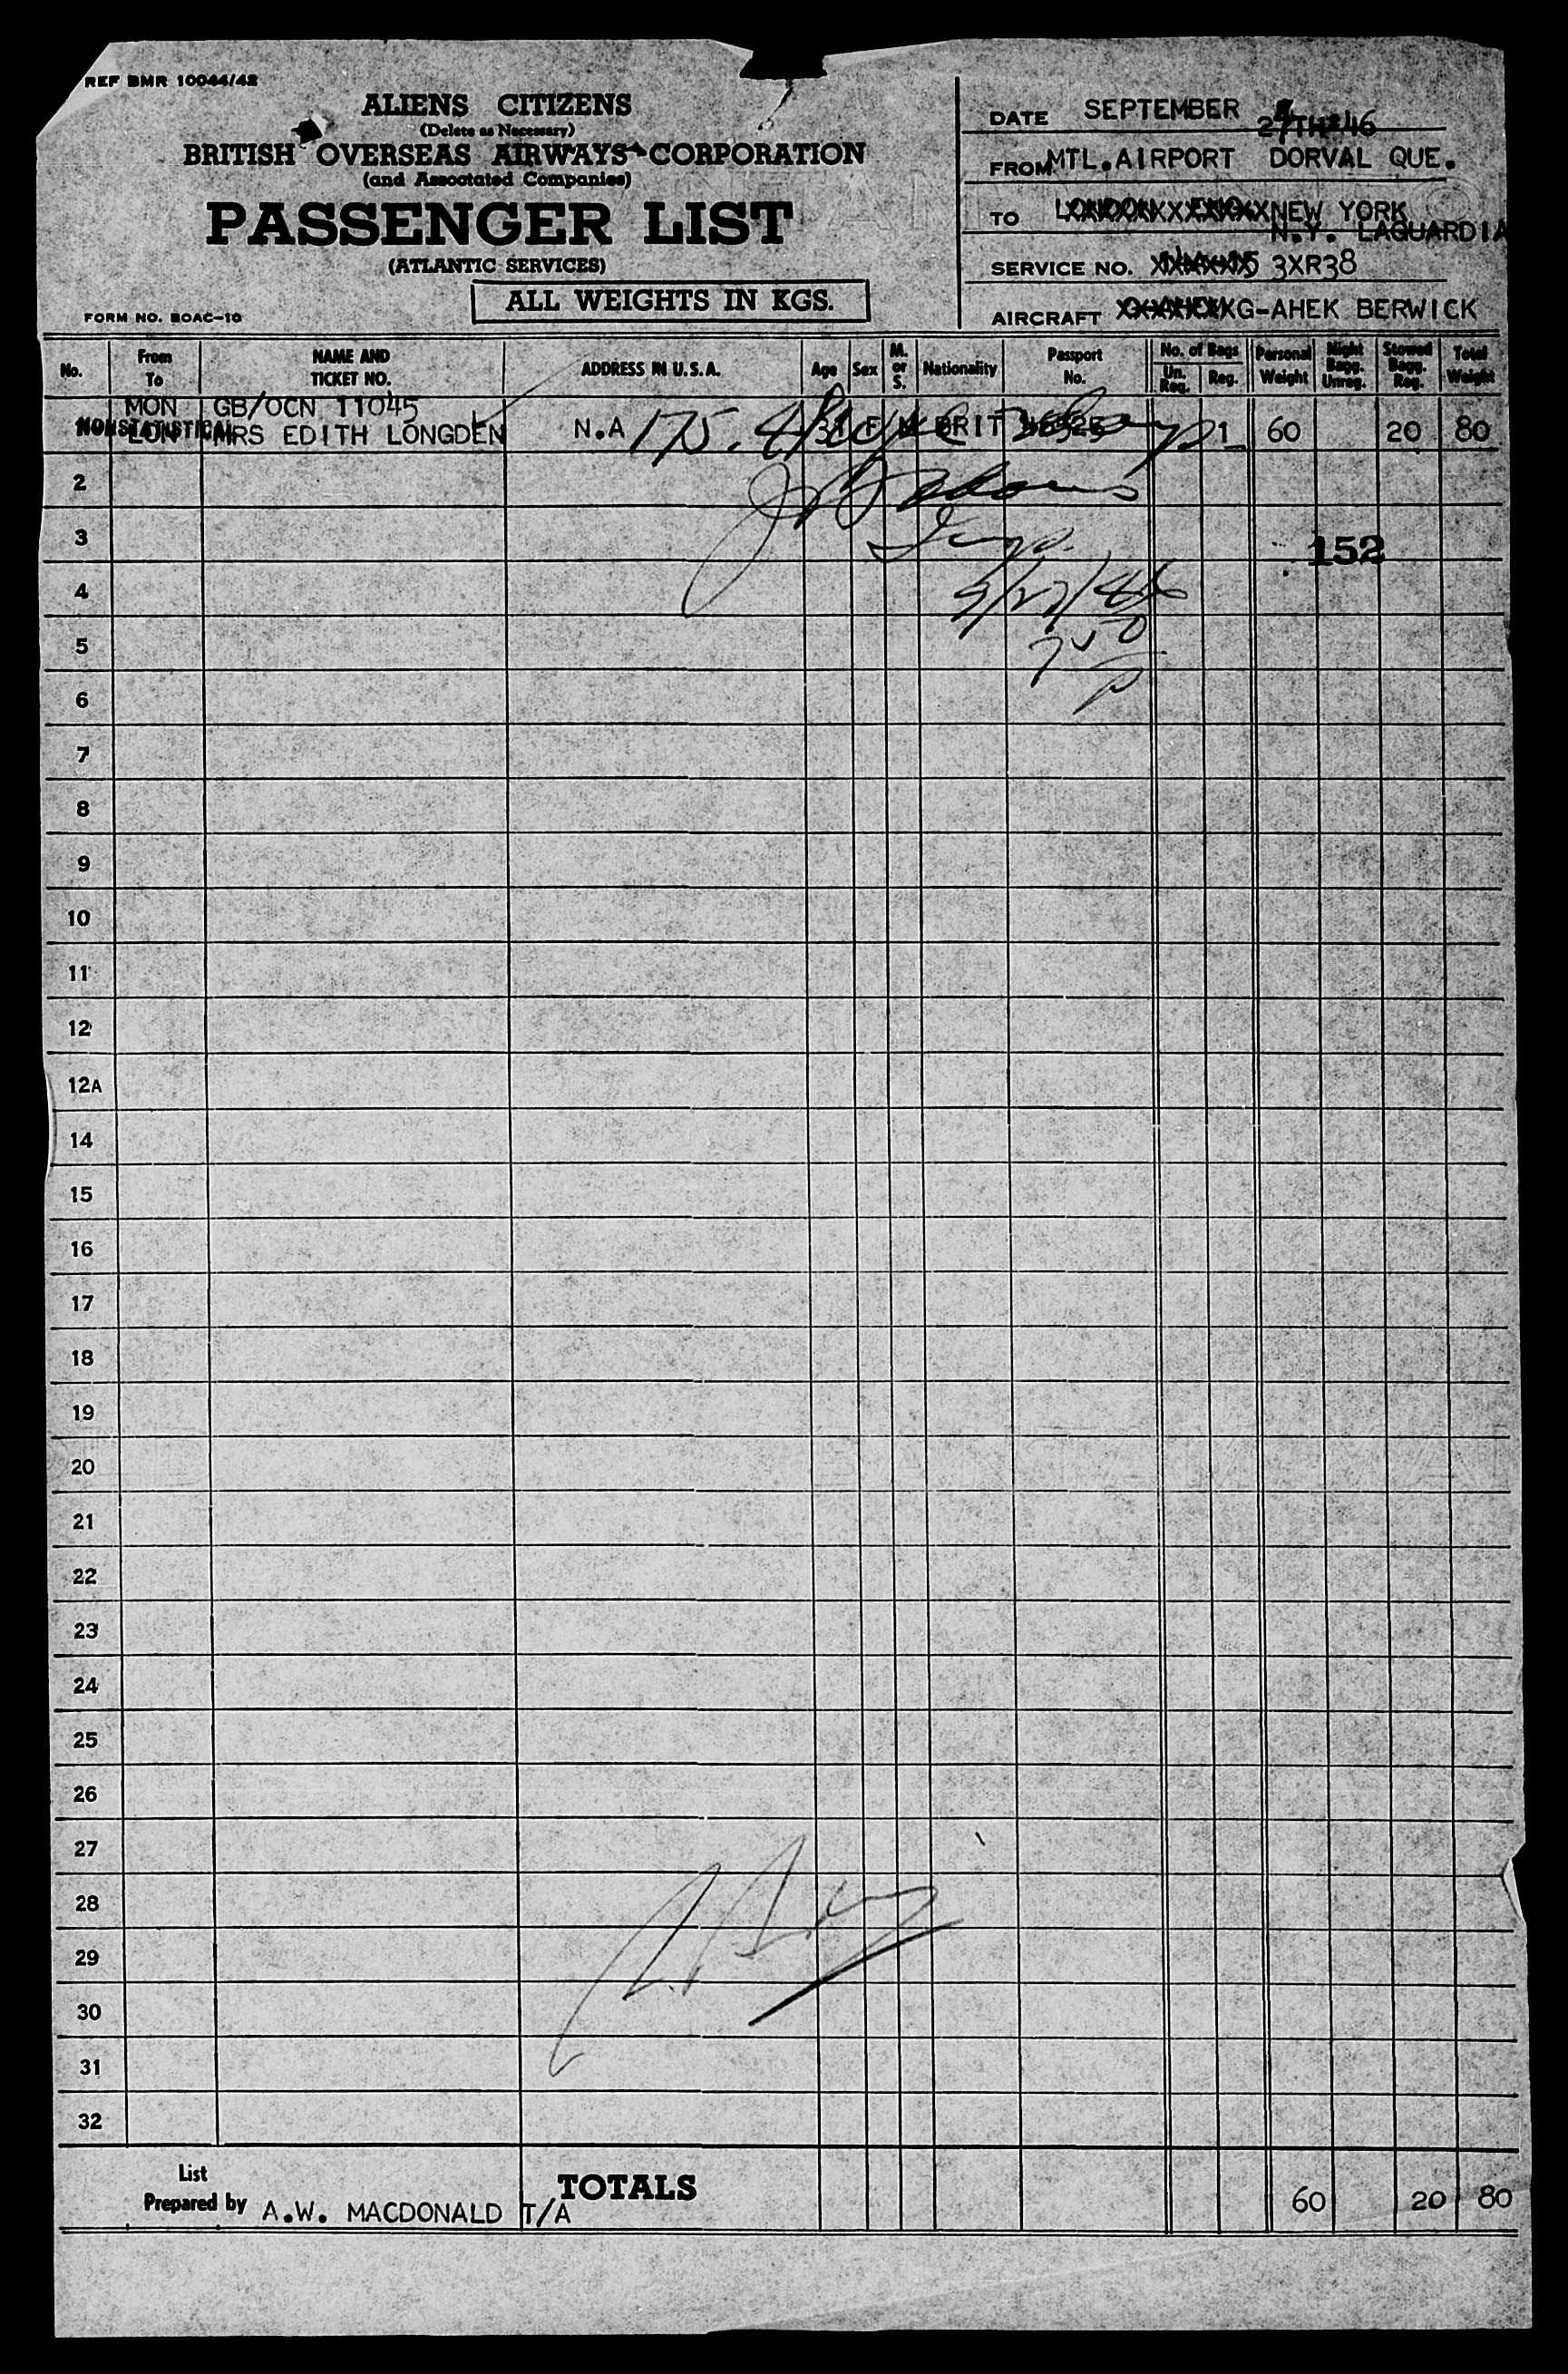 REF BMR 10044/42
ALIENS CITIZENS
(Delete as Necessary)
BRITISH OVERSEAS AIRWAYS CORPORATION
(and Associated Companies)
PASSENGER LIST
(ATLANTIC SERVICES)
ALL WEIGHTS IN KGS.
FORM NO. BOAC-10
DATE SEPTEMBER 27TH 46
FROM MTL.AIRPORT DORVAL QUE.
TO NEW YORK
N.Y. LAGUARDIA
SERVICE NO. 3XR38
AIRCRAFT G-AHEK BERWICK
No. From To NAME AND TICKET NO. ADDRESS IN U.S.A. Age Sex M. or S. Nationality Passport No. No. of Bags Un. Reg. Reg. Personal Weight Night Bagg. Unreg. Stowed Bagg. Reg. Total Weight
MON GB/OCN 11045
NONSTATISTICAL LON MRS EDITH LONGDEN N.A 175. 31 F M BRIT 1 60 20 80
2
3 152
4 9/27/46
5
6
7
8
9
10
11
12
12A
14
15
16
17
18
19
20
21
22
23
24
25
26
27
28
29
30
31
32
List
Prepared by A.W. MACDONALD T/A TOTALS 60 20 80